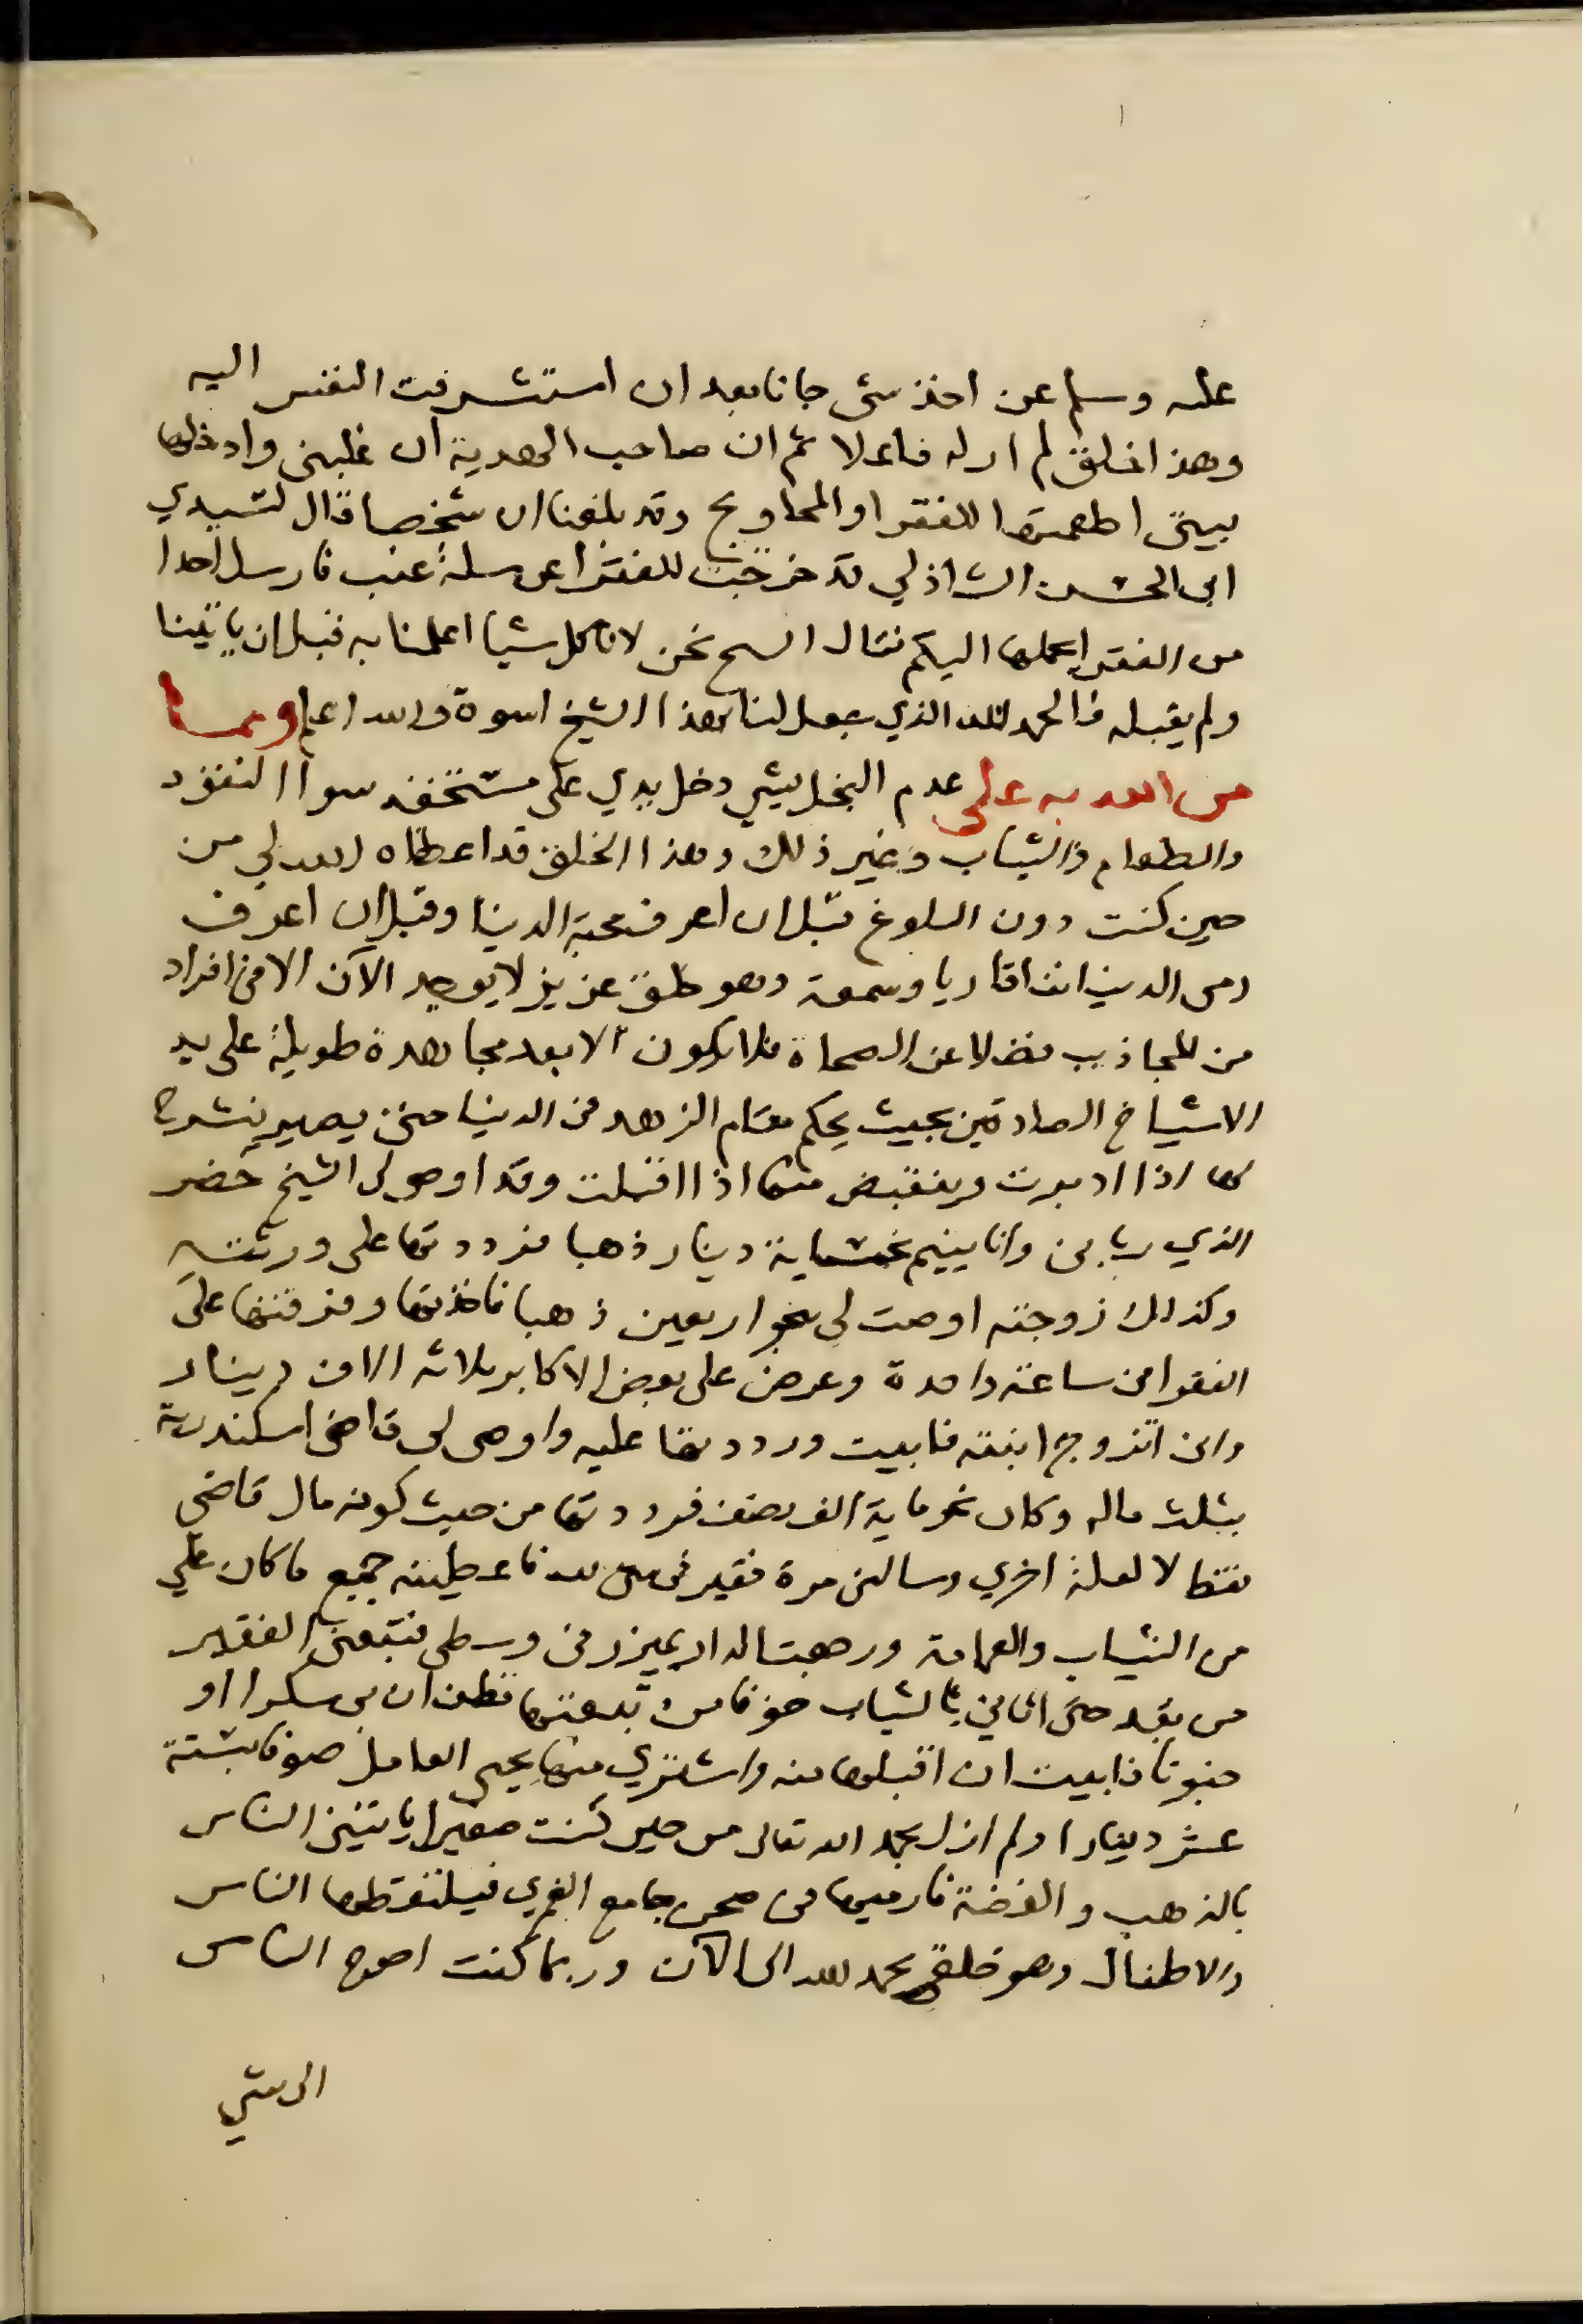 عليه وسلم عن اخذ شى جانا بعد ان استشرفت النفس اليه
وهذا خلق لم ار له فاعلا ثم ان صاحب الهدية ان غلبنى وادخلها
بيتى اطعمتها للفقرا والمحاويج وقد بلغنا ان شخصا قال لسيدي
ابى الحسن الشاذلي قد خرجت للفقرا عن سلة عنب فارسل احدا
من الفقرا يحملها اليكم فقال الشيخ نحن لا ناكل شيا اعلمنا به قبل ان ياتينا
ولم يقبله فالحمد لله الذي جعل لنا بهذا الشيخ اسوة والله اعلم ومما
من الله به على عدم البخل بشي دخل يدي على مستحقه سوا النقود
والطعام والثياب وغير ذلك وهذا الخلق قد اعطاه الله لي من
حين كنت دون البلوغ قبل ان اعرف محبة الدنيا وقبل ان اعرف
رمى الدنيا نفاقا ريا وسمعة وهو خلق عزيز لا يوجد الآن الا في افراد
من المجاذيب فضلا عن الصحاة فلا يكون الا بعد مجاهدة طويلة على يد
الاشياخ الصادقين بحيث يحكم مقام الزهد فى الدنيا حتى يصير ينشرح
لها اذا ادبرت وينقبض منها اذا اقبلت وقد اوصى لى الشيخ خضر
الذي ربانى وانا يتيم بخمسماية دينار ذهبا فرددتها على ورثته
وكذلك زوجته اوصت لى بنحو اربعين ذهبا فاخذتها وفرقتها على
الفقرا فى ساعة واحدة وعرض على بعض الاكابر ثلاثة الاف دينار
وانى اتزوج ابنته فابيت ورددتها عليه واوصى لى قاضى اسكندرية
بثلث ماله وكان نحو ماية الف نصف فرددتها من حيث كونه مال قاضي
فقط لا لعلة اخري وسالنى مرة فقير فى شى لله فاعطيته جميع ما كان علي
من الثياب والعمامة ورجعت الدار بميزر فى وسطى فتبعنى الفقير
من بعد حتى اتانى بالثياب خوفا من تبعتها فظن ان بى سكرا او
جنونا فابيت ان اقبلها منه واشتري منها يحيى العامل صوفا بستة
عشر دينارا ولم ازل بحمد الله تعالى من حين كنت صغيرا ياتينى الناس
بالذهب والفضة فارميها فى صحن جامع الغمري فيلتقطها الناس
والاطفال وهو خلقى بحمد لله الى الآن وربما كنت احوج الناس
الى شي